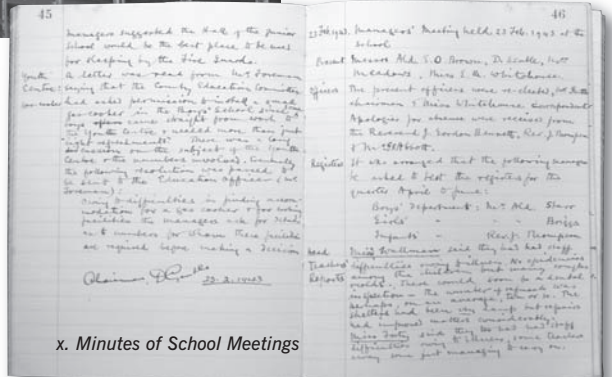 45
managers suggested the Hall of the Junior
School would be the best place to be used
for sleeping by the Fire Guards.
Youth A letter was read from Mr Foreman
Centre: saying that the County Education Committee
had asked permission to install a small
gas-cooker in the Boys' School since
boys came straight from work to
the Youth Centre & needed more than just
"light refreshments". There was a long
discussion on the subject of the Youth
Centre & the numbers involved. Generally
the following resolution was passed to
be sent to the Education Officer (Mr
Foreman):
Owing to difficulties in finding accom-
modation for a gas cooker & for other
facilities the managers ask for details
as to numbers for whom these facilities
are required before making a decision
Chairman
46
23 Feb 1943. Managers' Meeting held 23 Feb. 1943 at the
School
Present Ald. S. O. Brown, D.
Meadows, Miss E. A. Whitehouse
Officers The present officers were re-elected,
chairman & Miss Whitehouse Correspondent
Apologies for absence were received from
the Reverend J. Gordon Bennett, Rev. J. Thompson
&
Registers It was arranged that the following managers
be asked to test the registers for the
quarter April to June:
Boys' Department: Mr Ald Starr
Girls' " Briggs
Infants " Rev. J. Thompson
Head Miss Wallman said they had had staff
Teachers' difficulties owing to illness. No epidemics
Reports among the children but many coughs
& colds. There would soon be a dental
inspection – the number of refusals was
perhaps, on an average, ten or so. The
shelters had been very damp but repairs
had improved matters considerably.
Miss said they too had had staff
difficulties owing to illness, some teachers
away some just managing to carry on.
x. Minutes of School Meetings